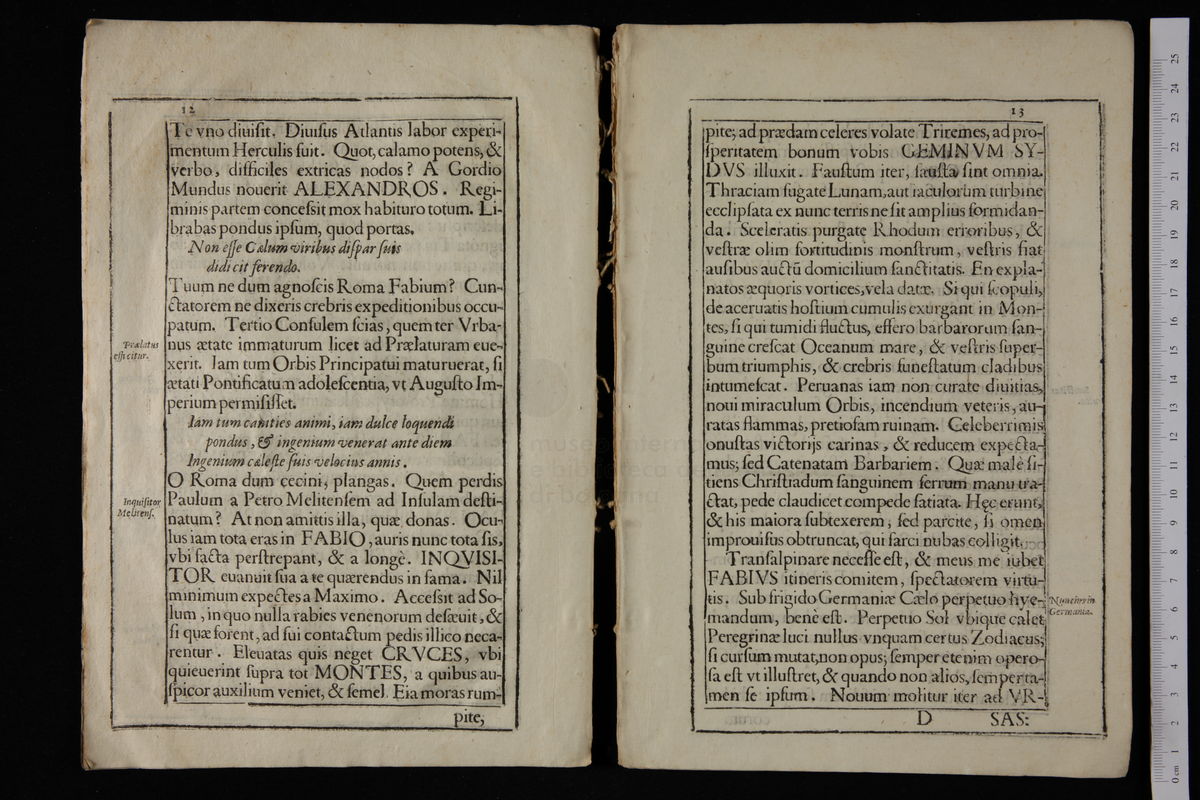 12
Te vno diuisit. Diuisus Atlantis labor experi-
mentum Herculis fuit. Quot, calamo potens, &
verbo, difficiles extricas nodos? A Gordio
Mundus nouerit ALEXANDROS. Regi-
minis partem concessit mox habituro totum. Li-
brabas pondus ipsum, quod portas.
Non esse Cælum viribus dispar suis
didicit ferendo.
Tuum ne dum agnoscis Roma Fabium? Cun-
ctatorem ne dixeris crebris expeditionibus occu-
patum. Tertio Consulem scias, quem ter Vrba-
Prælatus
efficitur.
nus ætate immaturum licet ad Prælaturam eue-
xerit. Iam tum Orbis Principatui maturuerat, si
ætati Pontificatum adolescentia, vt Augusto Im-
perium permisisset.
Iam tum canities animi, iam dulce loquendi
pondus, & ingenium venerat ante diem
Ingenium cæleste suis velocius annis.
O Roma dum cecini, plangas. Quem perdis
Inquisitor
Melitens.
Paulum a Petro Melitensem ad Insulam desti-
natum? At non amittis illa, quæ donas. Ocu-
lus iam tota eras in FABIO, auris nunc tota sis,
vbi facta perstrepant, & a longè. INQVISI-
TOR euanuit sua a te quærendus in fama. Nil
minimum expectes a Maximo. Accessit ad So-
lum, in quo nulla rabies venenorum desæuit, &
si quæ forent, ad sui contactum pedis illico neca-
rentur. Eleuatas quis neget CRVCES, vbi
quieuerint supra tot MONTES, a quibus au-
spicor auxilium veniet, & semel. Eia moras rum-
pite,
13
pite; ad prædam celeres volate Triremes, ad pro-
speritatem bonum vobis GEMINVM SY-
DVS illuxit. Faustum iter, fausta sint omnia.
Thraciam fugate Lunam, aut iaculorum turbine
ecclipsata ex nunc terris ne sit amplius formidan-
da. Sceleratis purgate Rhodum erroribus, &
vestræ olim fortitudinis monstrum, vestris fiat
ausibus auctū domicilium sanctitatis. En expla-
natos æquoris vortices, vela datæ. Si qui scopuli,
de aceruatis hostium cumulis exurgant in Mon-
tes, si qui tumidi fluctus, effero barbarorum san-
guine crescat Oceanum mare, & vestris super-
bum triumphis, & crebris funestatum cladibus
intumescat. Peruanas iam non curate diuitias,
noui miraculum Orbis, incendium veteris, au-
ratas flammas, pretiosam ruinam. Celeberrimis
onustas victorijs carinas, & reducem expecta-
mus; sed Catenatam Barbariem. Quæ malè si-
tiens Christiadum sanguinem ferrum manu tra-
ctat, pede claudicet compede satiata. Hęc erunt,
& his maiora subtexerem, sed parcite, si omen
improuisus obtruncat, qui farci nubas colligit.
Transalpinare necesse est, & meus me iubet
FABIVS itineris comitem, spectatorem virtu-
tis. Sub frigido Germaniæ Cælo perpetuo hye-
Nuncius in
Germania.
mandum, benè est. Perpetuo Sol vbique calet
Peregrinæ luci nullus vnquam certus Zodiacus;
si cursum mutat, non opus; semper etenim opero-
sa est vt illustret, & quando non alios, semper ta-
men se ipsum. Nouum molitur iter ad VR-
D SAS: